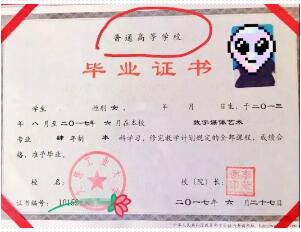 普通高等学校
毕业证书
学生 性别 女， 年 月 日生，于二〇一三
年八月至二〇一七年六月在本校 数字媒体艺术
专业 肆年制 本 科学习，修完教学计划规定的全部课程，成绩合
格，准予毕业。
校 名： 校（院）长：
工业大
证书编号： 10152
二〇一七年 六月二十七日